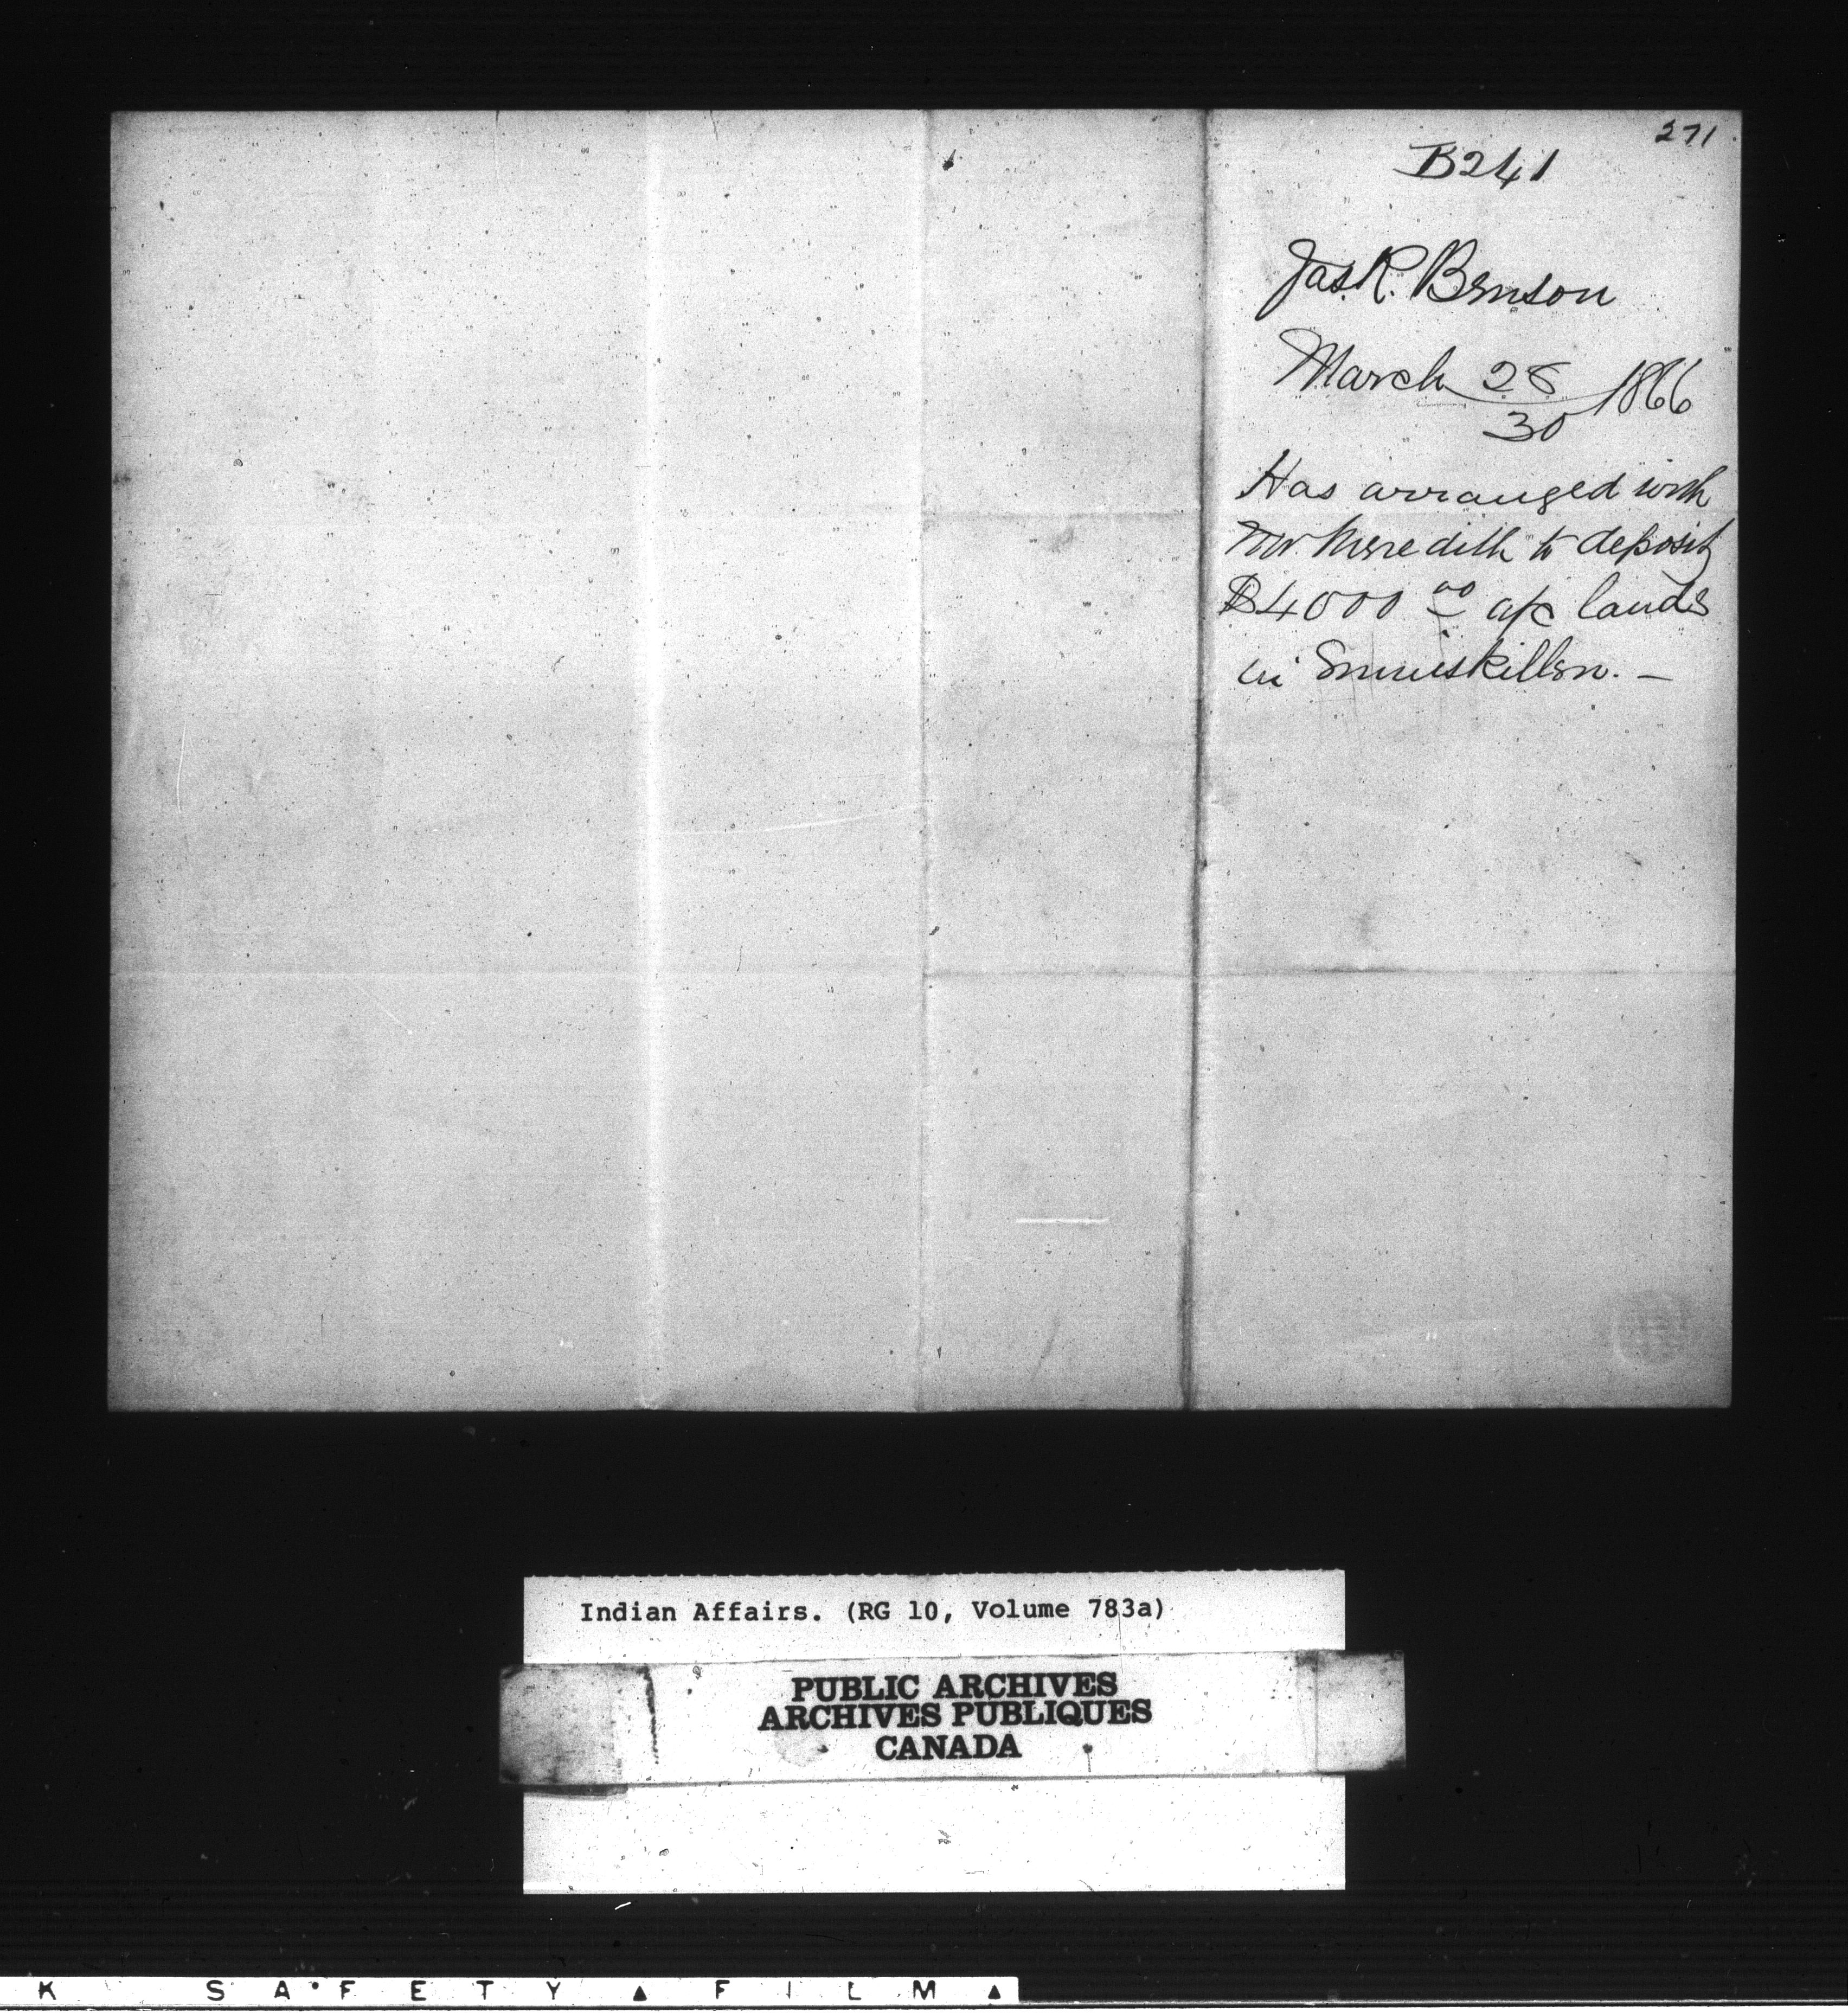 271
B241
Jas. R. Benson
March 28/30 1866
Has arranged with
Mr. Meredith to deposit
$4000 00 a/c lands
in Enniskillen. —
Indian Affairs. (RG 10, Volume 783a)
PUBLIC ARCHIVES
ARCHIVES PUBLIQUES
CANADA
K SAFETY ▲ FILM ▲